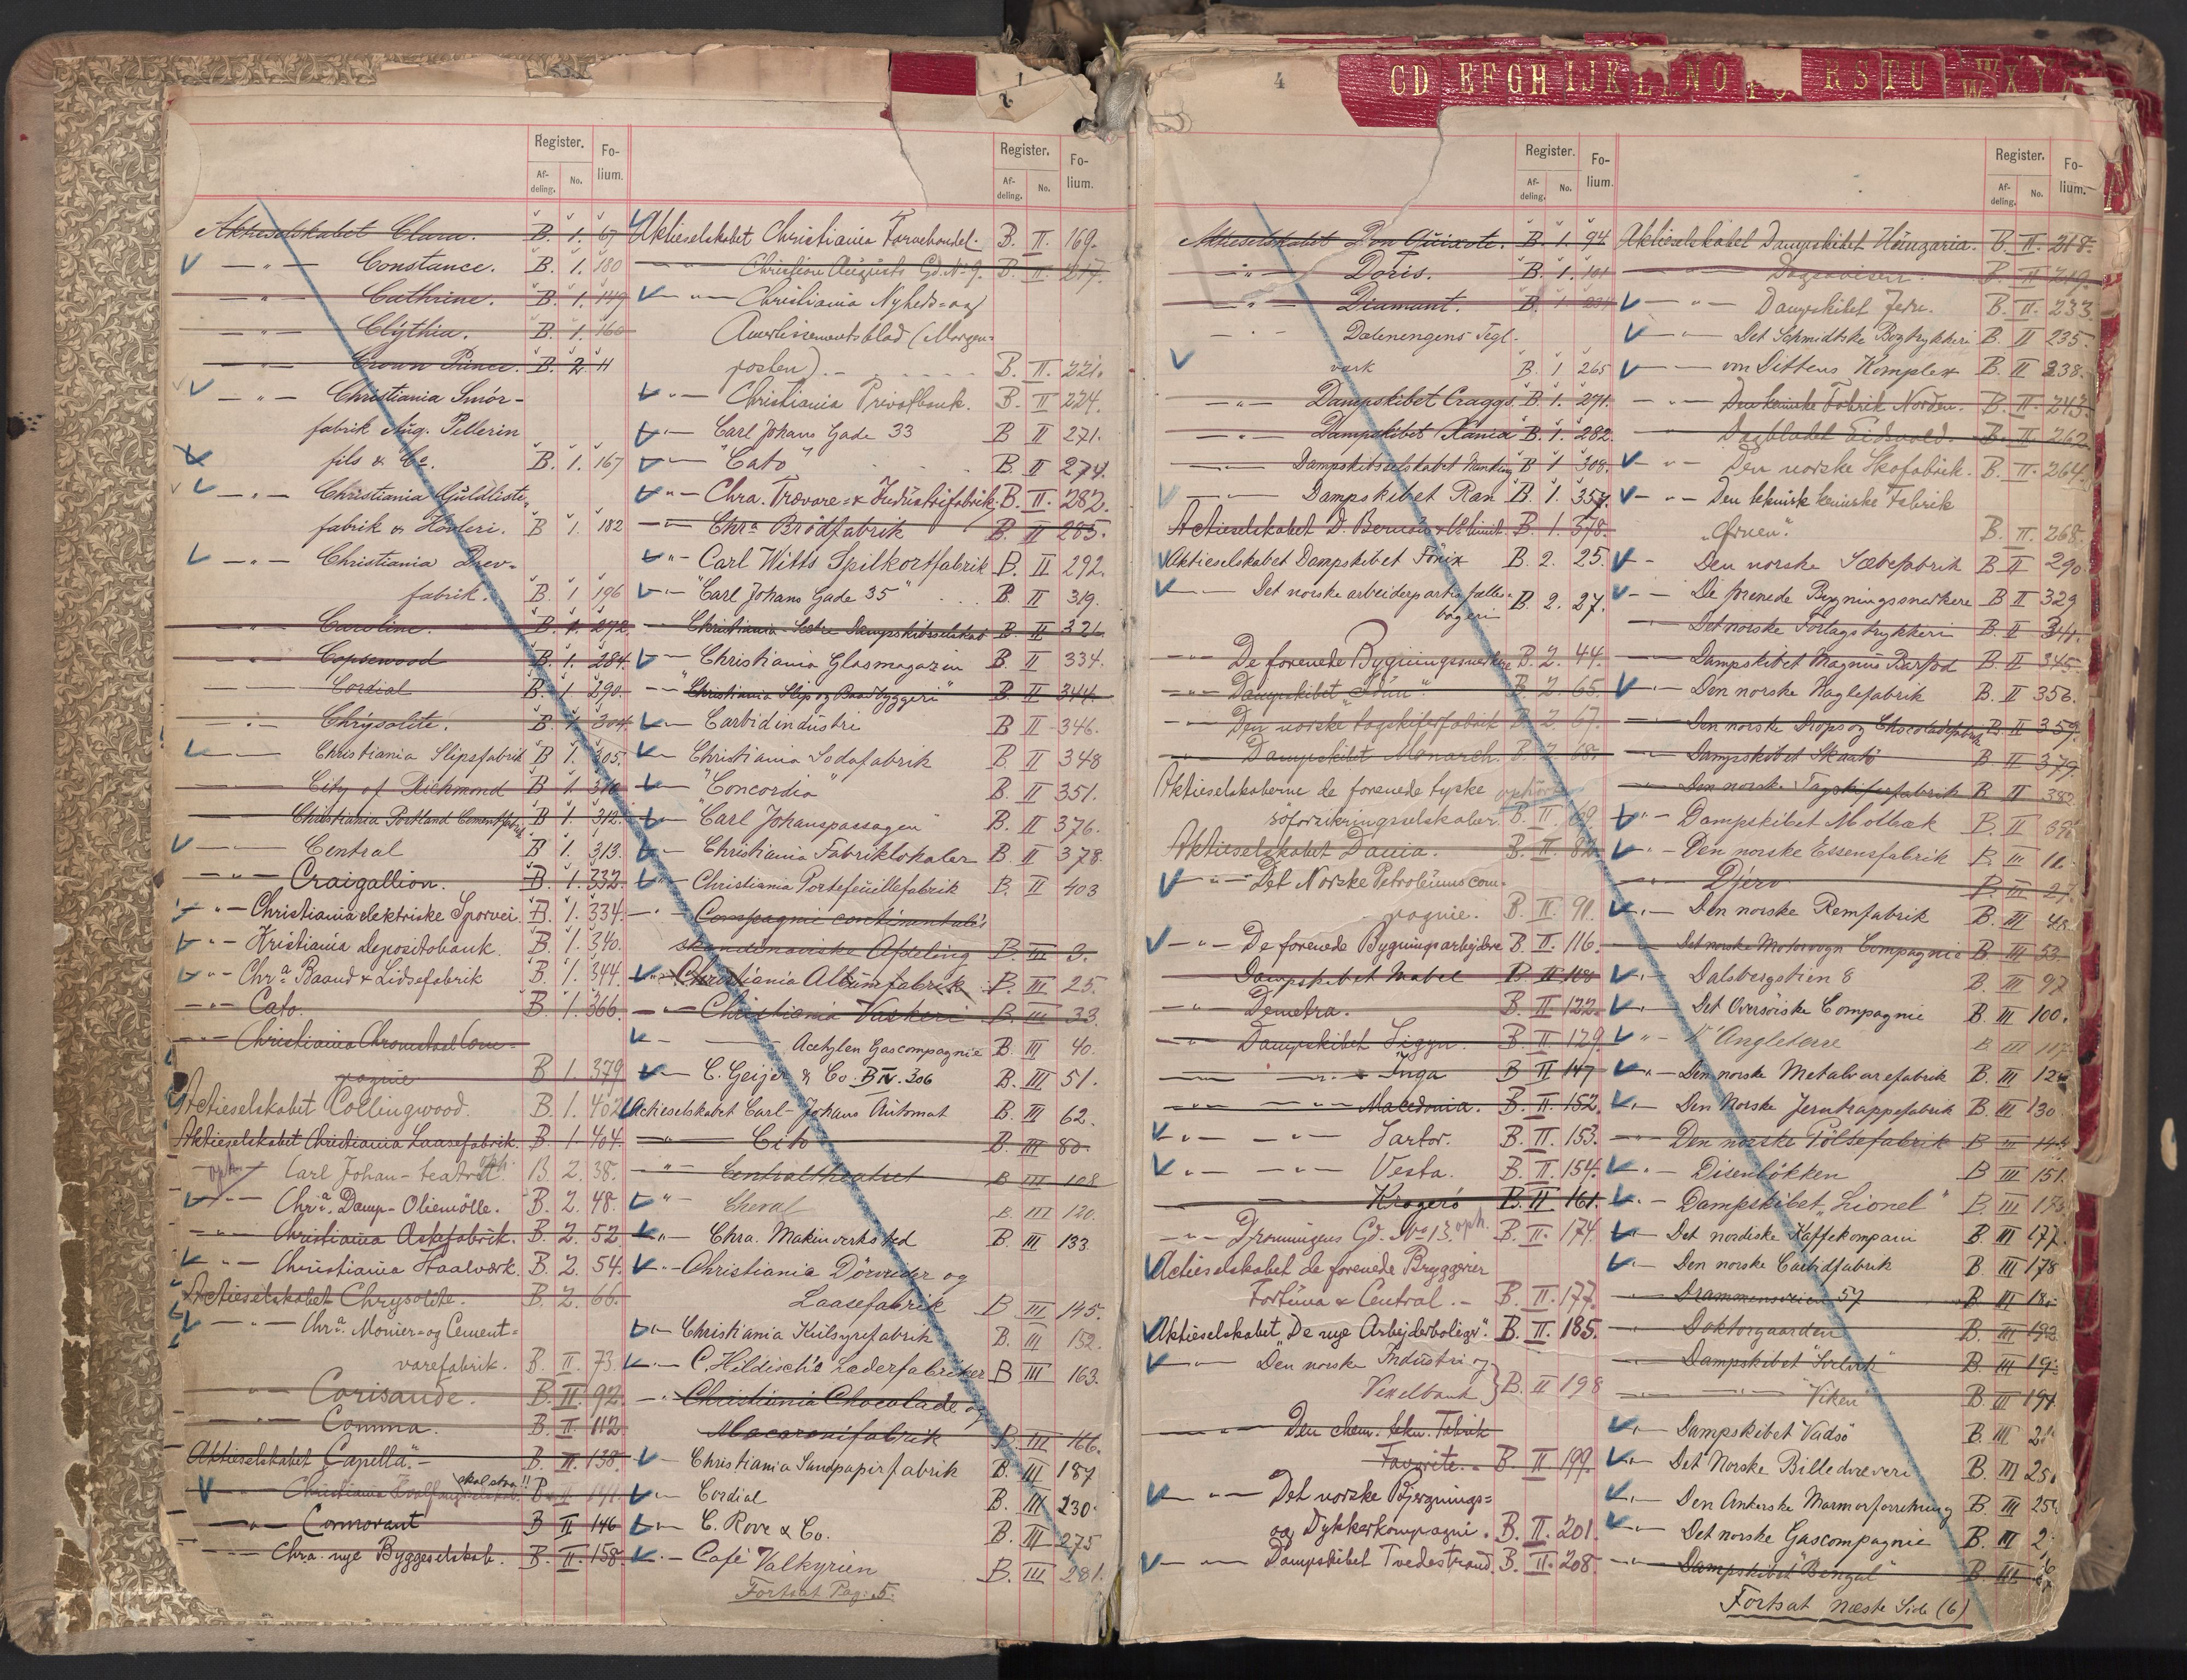 Register. Fo-
Af-
deling. No. lium.
Aktieselskabet Clara. B. 1. 67
— " — Constance. B. 1. 180
— " — Cathrine. B. 1. 149
— " — Clythia. B. 1. 160
— " — Crown Prince. B. 2 11
— " — Christiania Smör-
fabrik Aug. Pellerin
fils & Co. B. 1. 167
— " — Christiania Guldliste-
fabrik & Hövleri. B 1. 182
— " — Christiania Drev-
fabrik. B. 1 196
— " — Caroline. B. 1. 272
— " — Copsewood B. 1. 284.
— " — Cordial B. 1 290.
— " — Chrysolite. B. 1. 304
— " — Christiania Slipsfabrik B 1. 305.
— " — City of Richmond B 1. 310
Christiania Portland Cementfabrik B 1. 312.
— " — Central B 1. 313.
— " — Craigallion. B. 1. 332.
— " — Christiania elektriske Sporvei. B. 1. 334.
— " — Kristiania depositobank. B. 1. 340.
— " — Chra. Baand & Lidsefabrik B. 1. 344.
— " — Cato. B. 1. 366.
— " — Christiania Chromotael Com-
pagnie B 1. 379
Actieselskabet Collingwood. B. 1. 402
Aktieselskabet Christiania Laasefabrik. B. 1. 404.
oph. Carl Johan-teatret. oph. B. 2. 38.
— " — Chra. Damp-Oliemölle. B. 2. 48.
— " — Christiania Æskefabrik. B. 2. 52
— " — Christiania Staalværk. B. 2. 54.
Actieselskabet Chrysolite. B. 2. 66.
— " — Chra. Monier- og Cement-
varefabrik. B. II. 73.
— " — Corisande. B. II. 92.
— " — Comma. B. II. 112
Aktieselskabet "Capella". — B. II. 138.
skal staa!!
— " — Christiania B. II 141.
— " — Cormorant B II 146
— " — Chra. nye Byggeselskab. B. II. 158

Register. Fo-
Af-
deling. No. lium.
Aktieselskabet Christiania Farvehandel. B. II. 169.
— " — Christian Augusts Gd. No 9. B. II. 217.
— " — Christiania Nyheds- og
Avertissementsblad (Morgen-
posten). B. II. 221.
— " — Christiania Privatbank. B. II 224.
— " — Carl Johans Gade 33 B II 271.
— " — "Cato" B. II 274.
— " — Chra. Trævare- & Industrifabrik. B. II. 282.
— " — Chra Brödfabrik B. II 285.
— " — Carl Witts Spilkortfabrik B. II 292.
— " — "Carl Johans Gade 35" B. II 319.
— " — Christiania Dampskibsselskab B. II 321
— " — Christiania Glasmagazin B. II 334.
— " — "Christiania Slip og Baadbyggeri" B. II 344.
— " — Carbidindustri B II 346.
— " — Christiania Sodafabrik B. II 348
— " — "Concordia" B. II 351.
— " — "Carl Johanspassagen" B. II 376.
— " — Christiania Fabriklokaler B. II 378.
— " — Christiania Portefeuillefabrik B. II 403
— " — Compagnie continentale's
skandinaviske Afdeling B. III 3.
— " — Christiania Albumfabrik B. III 25.
— " — Christiania Vaskeri B. III 33.
— " — Acetylen Gascompagnie B. III 40.
— " — C. Geijer & Co. B IV. 306 B. III 51.
Actieselskabet Carl-Johans Automat B. III 62.
— " — Cito B. III 80.
— " — Centraltheatret B III 108
— " — Cheval B. III 120.
— " — Chra. Makinverksted B. III 133.
— " — Christiania Dörvrider og
Laasefabrik B III 145.
— " — Christiania Kulsyrefabrik B. III 152.
— " — C. Hildisch's Læderfabriker B III 163.
— " — Christiania Chocolade og
Macaronifabrik B. III 166.
— " — Christiania Sandpapirfabrik B. III 187
— " — Cordial B. III 230.
— " — C. Rove & Co. B. III 275
— " — Café Valkyrien B. III 281.
Fortsat Pag: 5.

4
C D E F G H I J K L N O R S T U W X Y
Register. Fo-
Af-
deling. No. lium.
Aktieselskabet Don Quixote. B. 1. 94
— " — Doris. B. 1. 101
— " — Diamant. B. 1
— " — Dælenengens Tegl-
værk B. 1 265
— " — Dampskibet Craggs. B. 1. 271.
— " — Dampskibet Xania B. 1. 282.
— " — Dampskibsselskabet Nanking B 1 308.
— " — Dampskibet Ran B. 1. 357.
Actieselskabet D. B. 1. 378.
Aktieselskabet Dampskibet Fönix B. 2. 25.
— " — Det norske arbeiderpartis fælles-
bageri B. 2. 27.
— " — De forenede Bygningssnedkere B. 2. 44.
— " — Dampskibet B. 2. 65.
— " — Den norske tagskiferfabrik B. 2. 67.
— " — Dampskibet Monarch. B. 2 68.
Aktieselskaberne de forenede tyske ophört
söforsikringsselskaber B. II. 69
Aktieselskabet Dania. B. II.
— " — Det Norske Petroleumscom-
pagnie. B. II. 91.
— " — De forenede Bygningsarbejdere B. II. 116.
Dampskibet Mabel B. II 118
— " — Demetra. B. II. 122.
— " — Dampskibet Sigyn. B. II. 129.
— " — Inga B II 147
— " — Macedonia. B. II. 152
— " — Sartor. B. II. 153.
— " — Vesta. B. II. 154.
Kragerö B. II 161.
— " — Dronningens Gd. No 13. oph. B. II. 174.
Actieselskabet de forenede Bryggerier
Fortuna & Central. — B. II. 177.
Aktieselskabet "De nye Arbejderboliger". B. II. 185.
— " — Den norske Industri og
Vexelbank } B. II 198
— " — Den chem. tekn. Fabrik
Favorite. B. II 199.
— " — Det norske Bjergnings-
og Dykkerkompagni. B. II. 201.
— " — Dampskibet Tvedestrand. B. II. 208.

Register. Fo-
Af-
deling. No. lium.
Aktieselskabet Dampskibet Hungaria. B. II. 218.
— " — Dagsavisen. B. II 219.
— " — Dampskibet Jern. B. II. 233.
— " — Det Schmidtske Bogtrykkeri B. II 235.
— " — von Dittens Komplex B. II 238.
— " — Den kemiske Fabrik Norden. B. II. 243.
— " — Dagbladet Eidsvold. B. II 262.
— " — Den norske Skofabrik. B. II. 264.
— " — Den teknisk kemiske Fabrik
B. II. 268.
— " — Den norske Sæbefabrik B II 290
— " — De forenede Bygningssnedkere B II 329
— " — Det norske Forlagstrykkeri B. II 341.
— " — Dampskibet Magnus Barfod B. II 345
— " — Den norske Haglefabrik B. II 356.
— " — Den norske Drops og Chocoladefabrik B. II 359.
— " — Dampskibet Skaatö B. II 379.
— " — Den norske Tagskiferfabrik B II 382
— " — Dampskibet Molbæk B. II
— " — Den norske Essensfabrik B. III 11.
— " — Djerv B. III 27.
— " — Den norske Remfabrik B. III 48.
— " — Det norske Motorvogn Compagnie B III 53.
— " — Dalsbergstien 8 B. III 97
— " — Det Oversöiske Compagnie B. III 100.
— " — D'Angleterre B III 117
— " — Den norske Metalvarefabrik B. III
— " — Den Norske Jerntrappefabrik B. III 130
— " — Den norske Pölsefabrik B III 144
— " — Disenbökken B III 151.
— " — Dampskibet "Lionel" B. III 173
— " — Det nordiske Kaffekompani B III 177.
— " — Den norske Carbidfabrik B III 178
— " — Drammensveien 57 B III
— " — Doktorgaarden B. III 192
— " — Dampskibet B III
— " — "Viken" B. III 194
— " — Dampskibet Vadsö B. III
— " — Det Norske Billedvæveri B. III
— " — Den Ankerske Marmorforretning B. III
— " — Det norske Gascompagnie B. III
— " — Dampskibet "Bengal" B III
Fortsat næste Side (6)